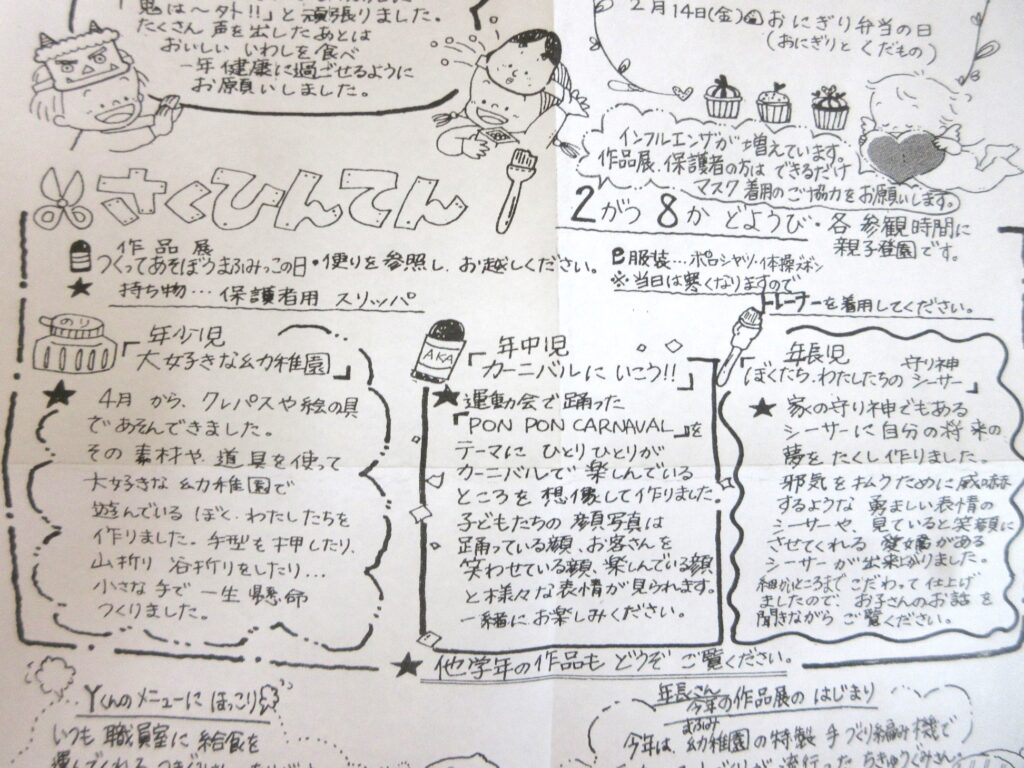 「鬼は〜外!!」と頑張りました。
たくさん声を出したあとは
おいしいいわしを食べ
一年健康に過ごせるように
お願いしました。
2月14日(金) おにぎり弁当の日
(おにぎりとくだもの)
インフルエンザが増えています。
作品展、保護者の方はできるだけ
マスク着用のご協力をお願いします。
さくひんてん
2がつ8かどようび・各参観時間に
親子登園です。
作品展
つくってあそぼうまふみっこの日・便りを参照し、お越しください。
★持ち物…保護者用スリッパ
服装…ポロシャツ・体操ズボン
※当日は寒くなりますので
トレーナーを着用してください。
のり
年少児
「大好きな幼稚園」
★4月から、クレパスや絵の具
であそんできました。
その素材や道具を使って
大好きな幼稚園で
遊んでいるぼく・わたしたちを
作りました。手型も押したり、
山折り谷折りをしたり…
小さな手で一生懸命
つくりました。
AKA
年中児
「カーニバルにいこう!!」
★運動会で踊った
「PON PON CARNAVAL」を
テーマにひとりひとりが
カーニバルで楽しんでいる
ところを想像して作りました。
子どもたちの顔写真は
踊っている顔、お客さんを
笑わせている顔、楽しんでいる顔
と様々な表情が見られます。
一緒にお楽しみください。
年長児
「ぼくたち、わたしたちの守り神シーサー」
★家の守り神でもある
シーサーに自分の将来の
夢をたくし作りました。
邪気を払うために威嚇
するような勇ましい表情の
シーサーや、見ていると笑顔に
させてくれる愛嬌がある
シーサーが出来上がりました。
細かいところまでこだわって仕上げ
ましたので、お子さんのお話を
聞きながらご覧ください。
★他学年の作品もどうぞご覧ください。
Yくんのメニューにほっこり
いつも職員室に給食を
年長さん
今年の作品展のはじまり
今年は、まふみ幼稚園の特製手づくり編み機で